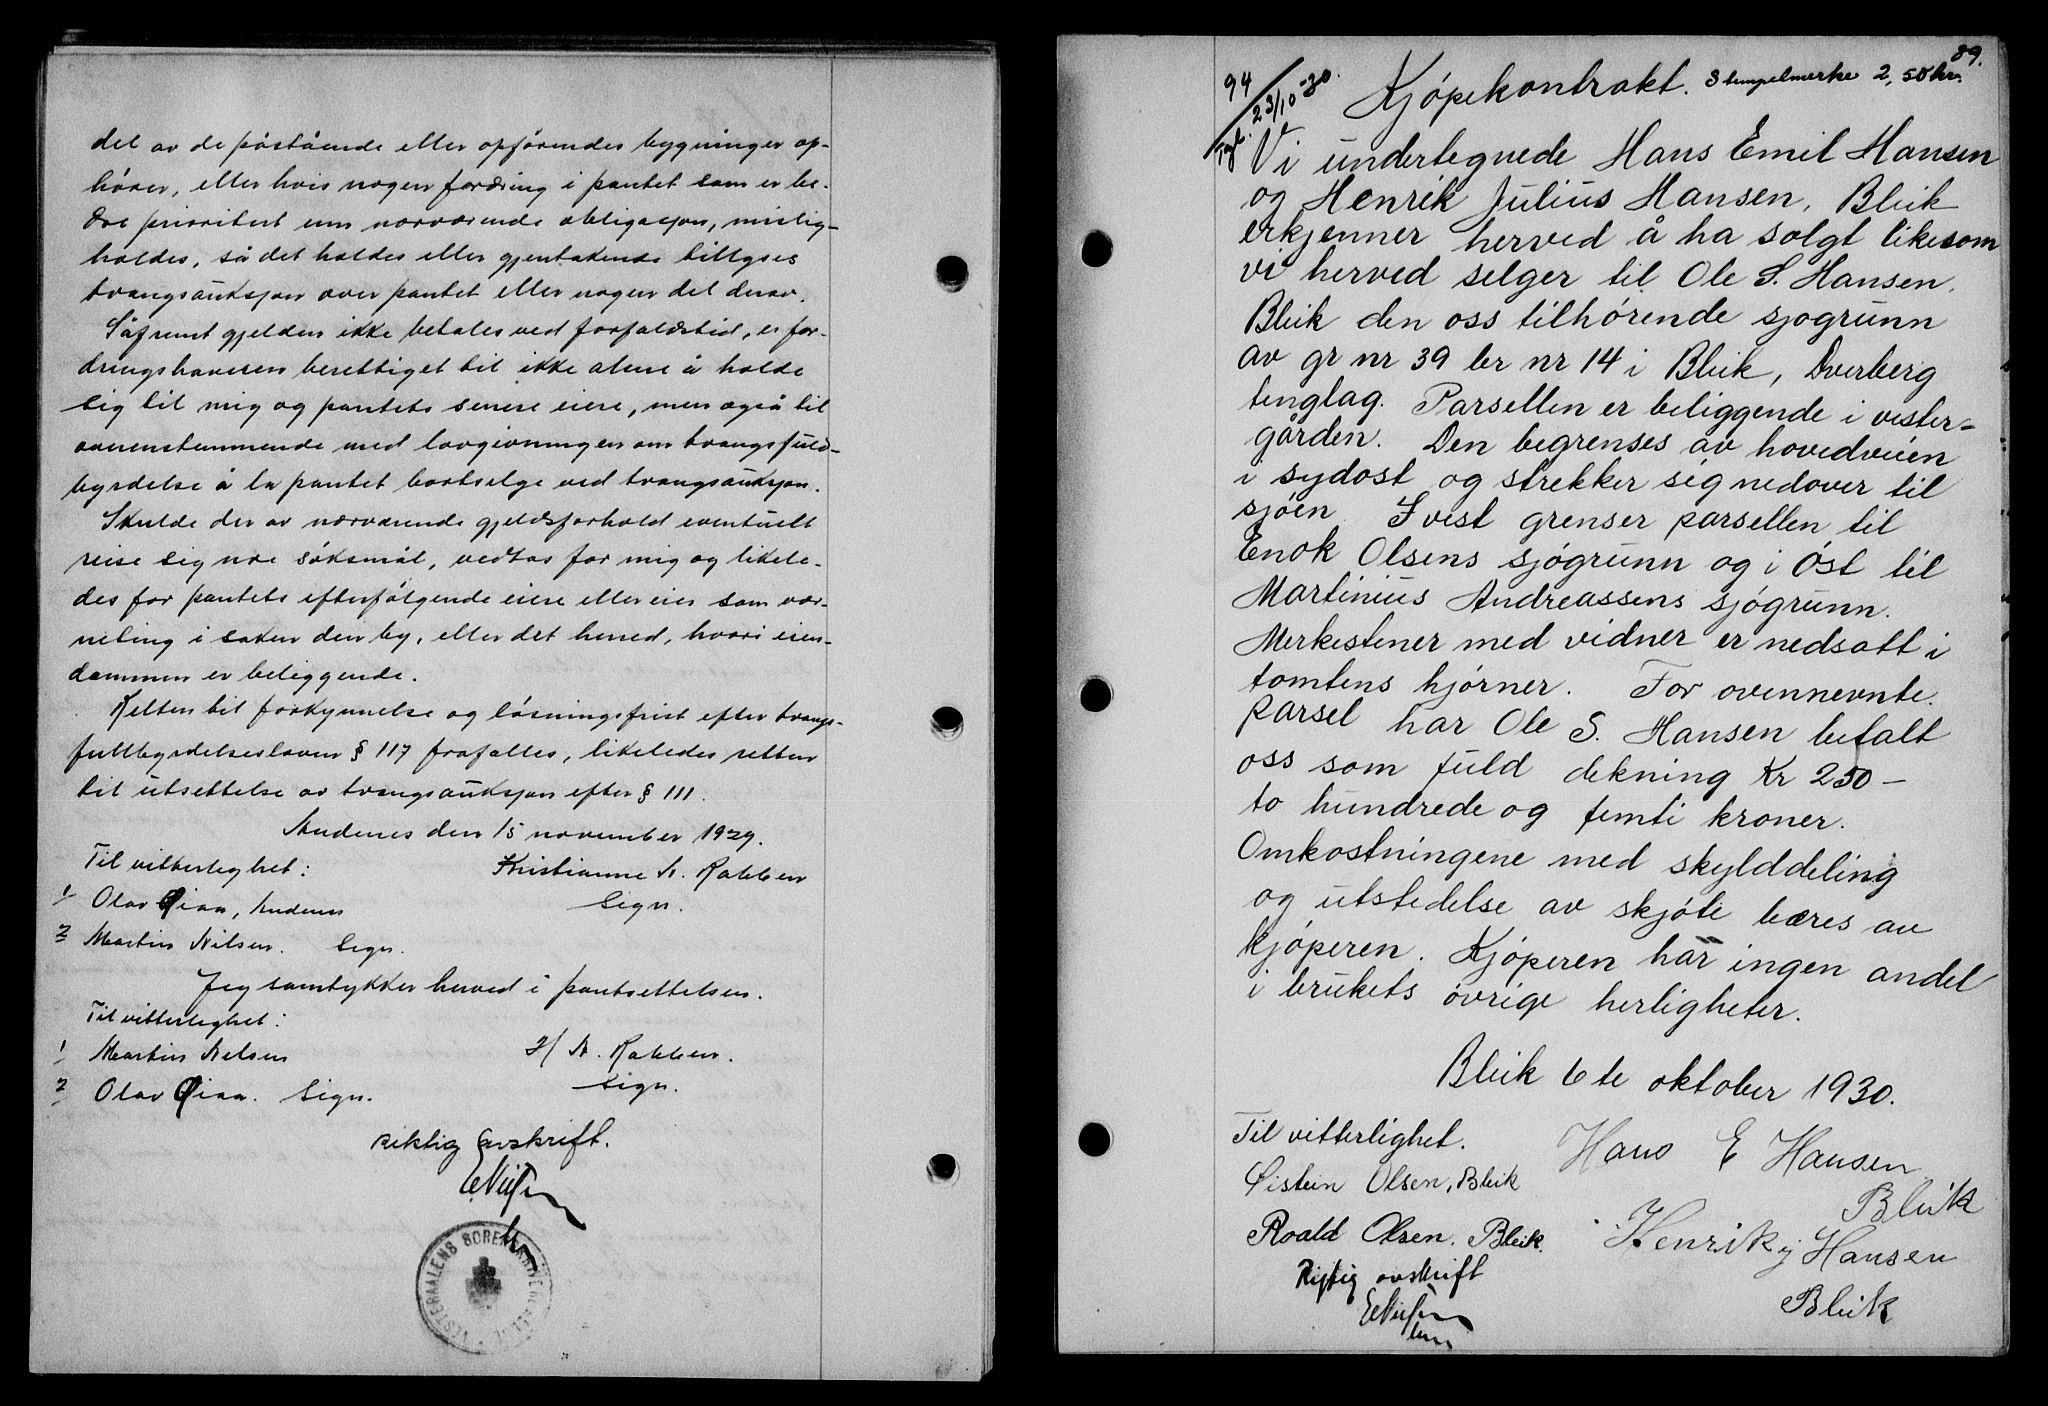 det av de påstående eller opførendes bygninger op-
hører, eller hvis nogen fordring i pantet som er be-
dre prioritert enn nærværende obligasjon, mislig-
holdes, så det holdes eller gjentakende tillyses
tvangsauksjon over pantet eller nogen del derav.
Såfremt gjelden ikke betales ved forfaldstid, er for-
dringshaveren berettiget til ikke alene å holde
sig til mig og pantets senere eiere, men også til
overenstemmende med lovgivningen om tvangsfuld-
byrdelse å la pantet bortselge ved tvangsauksjon.
Skulde der av nærværende gjeldsforhold eventuelt
reise sig noe søksmål, vedtas for mig og likele-
des for pantets efterfølgende eiere eller eier som ver-
neting i saken den by, eller det herred, hvori eien-
dommen er beliggende.
Retten til forkynnelse og løsningsfrist efter tvangs-
fullbyrdelsesloven § 117 frafalles, likeledes retten
til utsettelse av tvangsauksjon efter § 111.
Andenes den 15 november 1929.
Til vitterlighet:
Kristianne N. Rabben
1/ Olav Qian, Andenes
Sign.
2 Martin Nilsen. Sign.
Jeg samtykker herved i pantsettelsen.
Til vitterlighet:
1/ Martin Nilsen
H/ N. Rabben.
2 Olav Qian. Sign.
Sign.
riktig avskrift.
VESTERAALENS SORENSKRIVER
89.
94
23/10-30.
Tgl.
Kjøpekontrakt. Stempelmerke 2,50 kr.
Vi undertegnede Hans Emil Hansen
og Henrik Julius Hansen, Bleik
erkjenner herved å ha solgt likesom
vi herved selger til Ole S. Hansen.
Bleik den oss tilhørende sjøgrunn
av gr nr 39 br nr 14 i Bleik, Dverberg
tinglag. Parsellen er beliggende i vester-
gården. Den begrenses av hovedveien
i sydost og strekker sig nedover til
sjøen. I vest grenser parsellen til
Enok Olsens sjøgrunn og i Øst til
Martinius Andreassens sjøgrunn.
Merkestener med vidner er nedsatt i
tomtens hjørner. For ovennevnte
parsel har Ole S. Hansen betalt
oss som fuld dekning Kr 250-
to hundrede og femti kroner.
Omkostningene med skylddeling
og utstedelse av skjøte bæres av
kjøperen. Kjøperen har ingen andel
i brukets øvrige herligheter.
Bleik 6te oktober 1930.
Til vitterlighet.
Hans E Hansen
Øistein Olsen, Bleik
Bleik
Roald Olsen. Bleik.
Henrik J Hansen
Riktig avskrift
Bleik